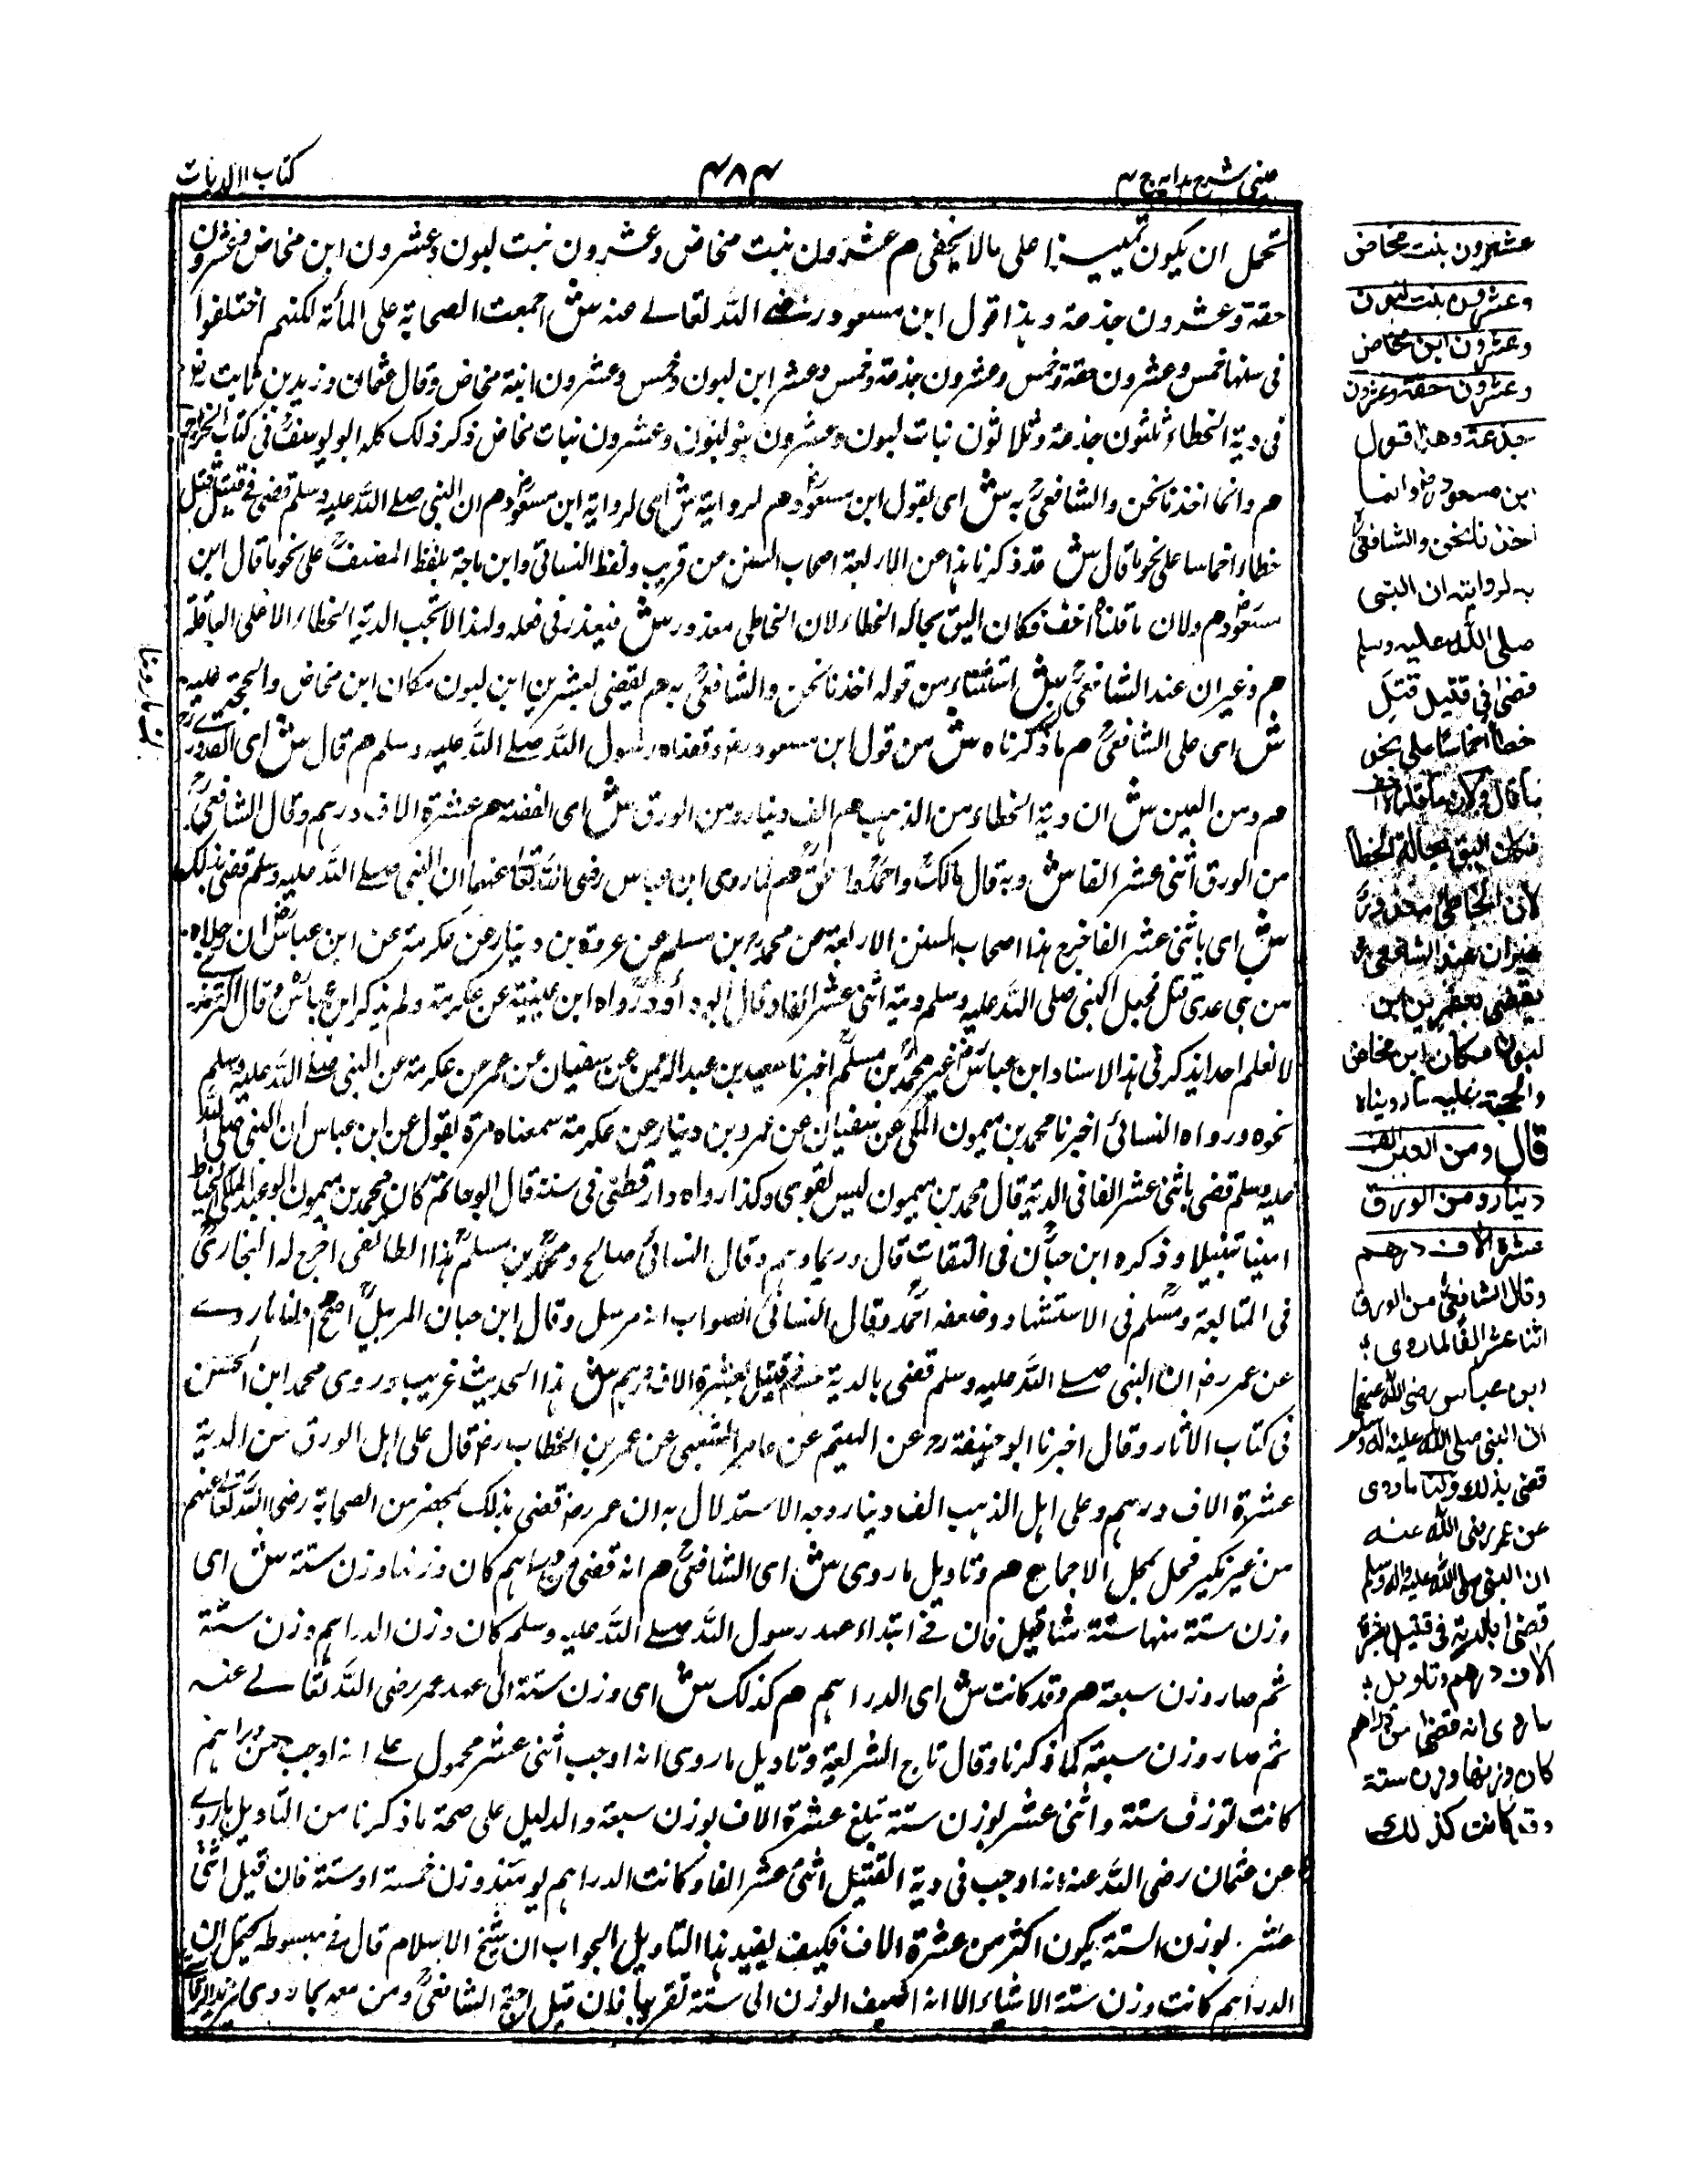 عینی شرح ہدایہ ج ۴
۴۸۴
کتاب الدیات
تحمل ان یکون تمییزا علی مالا یخفی م عشرون بنت مخاض وعشرون بنت لبون وعشرون ابن مخاض وعشرون
حقة وعشرون جذعة وہذا قول ابن مسعود رضی اللہ تعالے عنہ ش اجمعت الصحابة علی المأئة لکنہم اختلفوا
فی سنہا خمس وعشرون حقة وخمس وعشرون جذعة وخمس وعشر ابن لبون وخمس وعشرون ابنة مخاض وقال عثمان وزید بن ثابت رض
فی دیة الخطاء ثلثون جذعة وثلاثون بنات لبون وعشرون بنو لبون وعشرون بنات مخاض ذکر ذلک کلہ ابو یوسف فی کتاب الخراج
ھم وانما اخذنا نحن والشافعی بہ ش ای بقول ابن مسعود ھم لروایة ش ای لروایة ابن مسعود ھم ان النبی صلے اللہ علیہ وسلم قضی فے قتیل قتل
خطاء اخماسا علی نحو ما قال ش قد ذکرنا ہذا عن الاربعة اصحاب السنن من قریب ولفظ النسائی وابن ماجة بلفظ المصنف علی نحو ما قال ابن
مسعود ھم ولان ما قلناہ اخف فکان الیق بحالہ الخطاء لان الخاطی معذور ش فیعذر فی فعلہ ولہذا لا تجب الدیة الخطاء الا علی العاقلة
ھم وغیر ان عند الشافعی ش استثناء من قولہ اخذنا نحن والشافعی بہ ھم یقضی بعشرین ابن لبون مکان ابن مخاض والحجة علیہ
ش ای علی الشافعی ھم ما ذکرناہ ش من قول ابن مسعود رض وقضاہ رسول اللہ صلے اللہ علیہ وسلم ھم قال ش ای القدوری
ھم ومن العین ش ان دیة الخطاء من الذہب ھم الف دینار ومن الورق ش ای الفضة ھم عشرة الاف درہم وقال الشافعی
من الورق اثنی عشر الفا ش وبہ قال مالک واحمد واسحق ھم لما روی ابن عباس رضی اللہ تعا عنہما ان النبی صلے اللہ علیہ وسلم قضی بذلک
ش ای باثنی عشر الفا خرج ہذا اصحاب السنن الاربعة عن محمد بن مسلم عن عروة بن دینار عن عکرمة عن ابن عباس ان رجلا
من بنی عدی قتل فجعل النبی صلی اللہ علیہ وسلم دیتہ اثنی عشر الفا وقال ابوداؤد رواہ ابن عیینة عن عکرمة ولم یذکر ابن عباس وقال الترمذی
لا نعلم احدا یذکر فی ہذا الاسناد ابن عباس غیر محمد بن مسلم اخبرنا سعید بن عبدالرحمن عن سفیان عن عمر عن عکرمة عن النبی صلے اللہ علیہ وسلم
نحوہ ورواہ النسائی اخبرنا محمد بن میمون المکی عن سفیان عن عمرو بن دینار عن عکرمة سمعناہ مرة یقول عن ابن عباس ان النبی صلی اللہ
علیہ وسلم قضی باثنی عشر الفا فی الدیة قال محمد بن میمون لیس بقوی وکذا رواہ دارقطنی فی سننہ قال ابو حاتم کان محمد بن میمون ابو عبد الملک الخیاط
امینا وذکرہ ابن حبان فی الثقات قال وربما وہم وقال النسائی صالح ومحمد بن مسلم ہذا الطائفی اخرج لہ البخاری
فی المتابعة ومسلم فی الاستشہاد وضعفہ احمد وقال النسائی الصواب انہ مرسل وقال ابن حبان المرسل اصح ولنا ما روے
عن عمر رض ان النبی صلے اللہ علیہ وسلم قضی بالدیة فی قتیل بعشرة الاف درہم ش ہذا الحدیث غریب وروی محمد ابن الحسن
فی کتاب الاثار وقال اخبرنا ابو حنیفة رح عن الہیثم عن عامر الشعبی عن عمر بن الخطاب رض قال علی اہل الورق من الدیة
عشرة الاف درہم وعلی اہل الذہب الف دینار وجہ الاستدلال بہ ان عمر رض قضی بذلک بمحضر من الصحابة رضی اللہ تعالے عنہم
من غیر نکیر فحل بحل الاجماع ھم وتاویل ما روی ش ای الشافعی ھم انہ قضی من دراہم کان وزنہا وزن ستة ش ای
وزن ستة منہا ستة مثاقیل فان فے ابتداء عہد رسول اللہ صلے اللہ علیہ وسلم کان وزن الدراہم وزن ستة
ثم صار وزن سبعة ھم وقد کانت ش ای الدراہم ھم کذلک ش ای وزن ستة الی عہد عمر رضی اللہ تعالے عنہ
ثم صار وزن سبعة کما ذکرنا وقال تاج الشریعة وتاویل ما روی انہ اوجب اثنی عشر محمول علے انہ اوجب من دراہم
کانت توزن ستة واثنی عشر بوزن ستة تبلغ عشرة الاف بوزن سبعة والدلیل علی صحة ما ذکرنا من التاویل ما روے
عن عثمان رضی اللہ عنہ انہ اوجب فی دیة القتیل اثنی عشر الفا وکانت الدراہم یومئذ وزن خمسة او ستة فان قیل اثنی
عشر بوزن الستة یکون اکثر من عشرة الاف فکیف یفید ہذا التاویل الجواب ان شیخ الاسلام قال فے مبسوطہ یحتمل ان
الدراہم کانت وزن ستة الا شیاء الا انہ اضیف الوزن الی ستة تقریبا فان قیل احتج الشافعی ومن معہ بما روی
عشرون بنت مخاض
وعشرون بنت لبون
وعشرون ابن مخاض
وعشرون حقة وعشرون
جذعة وھذا قول
ابن مسعود رض وانما
اخذنا نحن والشافعی
بہ لروایتہ ان النبی
صلی اللہ علیہ وسلم
قضی فی قتیل قتل
خطأ اخماسا علی نحو
ما قال ولان ما قلناہ اخف
فکان الیق بحالة الخطا
لان الخاطی معذور
غیر ان عند الشافعی
یقضی بعشرین ابن
لبون مکان ابن مخاض
والحجة علیہ ما رویناہ
قال ومن العین الف
دینار ومن الورق
عشرة الاف درھم
وقال الشافعی من الورق
اثنا عشر الفا لما روی
ابن عباس رضی اللہ عنہما
ان النبی صلی اللہ علیہ الہ وسلم
قضی بذلک ولنا ما روی
عن عمر رضی اللہ عنہ
ان النبی صلی اللہ علیہ والہ وسلم
قضی بالدیة فی قتیل بعشرة
الاف درھم وتاویل
ما روی انہ قضی من دراھم
کان وزنھا وزن ستة
وقد کانت کذلک